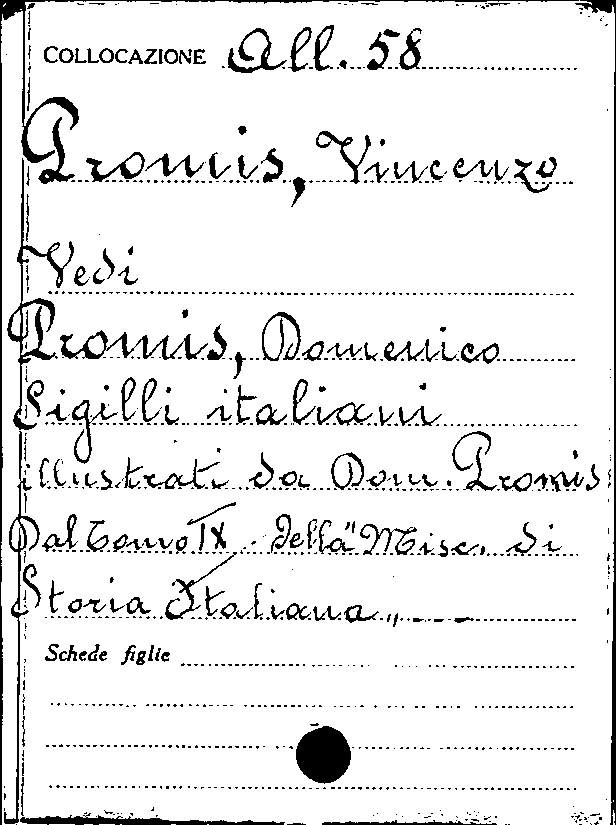 COLLOCAZIONE All. 58
Promis, Vincenzo
Vedi
Promis, Domenico
Sigilli italiani
illustrati da Dom. Promis
Dal Tomo IX della "Misc. di
Storia Italiana„
Schede figlie